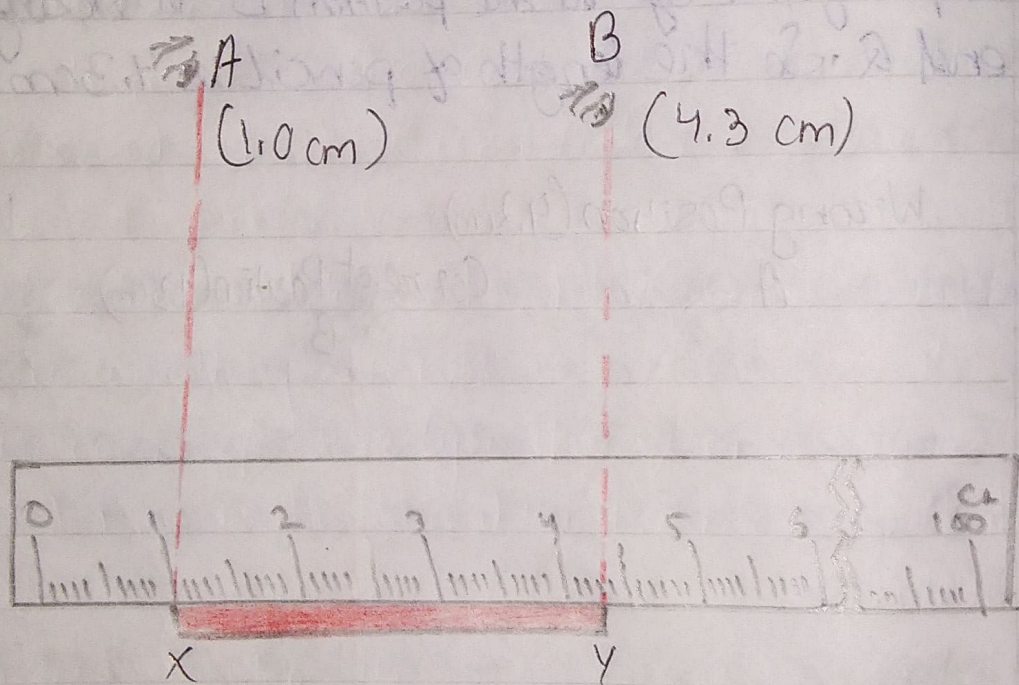 A
B
(1.0 cm)
(4.3 cm)
0 1 2 3 4 5 6 100
X
Y